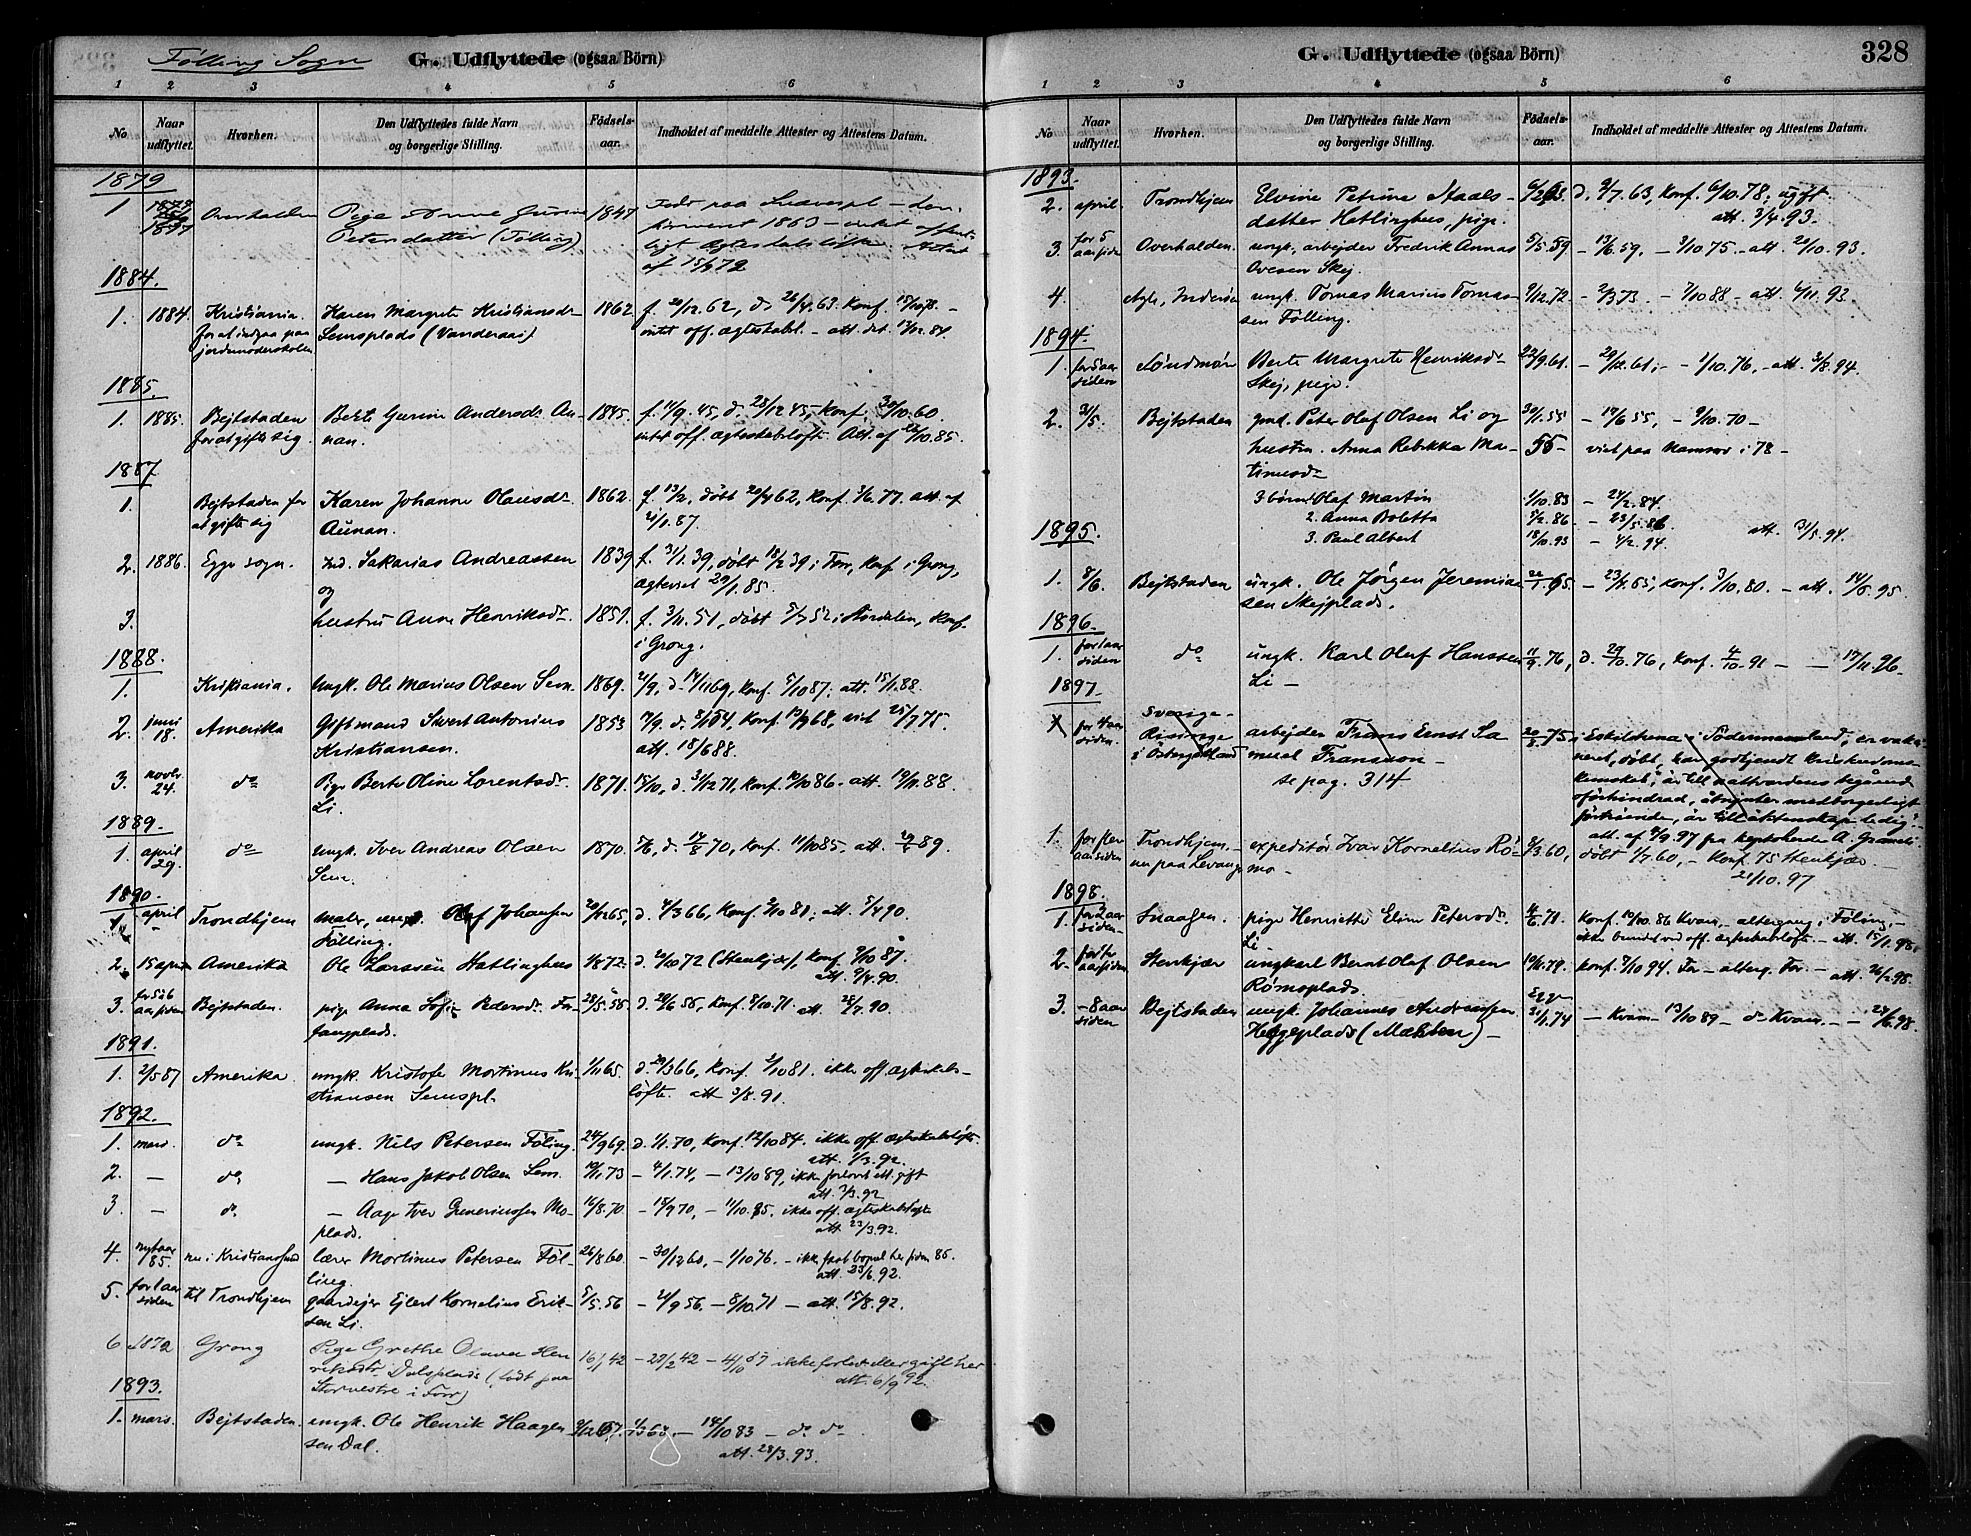 Følling Sogn
G. Udflyttede (ogsaa Börn)
1 2 3 4 5 6
No
Naar udflyttet.
Hvorhen.
Den Udflyttedes fulde Navn
og borgerlige Stilling.
Födsels-
aar.
Indholdet af meddelte Attester og Attestens Datum.
1879
1 Overhalden Pige Anne Gurine 1847
Petersdatter (Følling)
af 15/7 72
1884.
1. 1884. Kristiania. Karen Margrete Kristiansdr 1862 f. 20/12.62, d. 26/4.63. Konf.
for at indgaa paa Semsplads (Vanderaas) intet off. ægteskabl. – att. dat. 84
jordmoderskolen
1885.
1. 1885. Bejtstaden Berit Gurine Andersdr Au- 1845. f. 14/9.45, d. 28/12 45, Konf. 30/10.60.
for at gifte sig. nan. intet off. ægteskabsløfte. Att. af 22/10.85.
1887
1. Bejtstaden for Karen Johanne Olausdr 1862. f. 13/2, døbt 20/4 62, Konf. 3/6.77. att. af
at gifte sig Aunan. 21/1.87.
2. 1886. Egge sogn. Sakarias Andreassen 1839 f. 31/1.39, døbt 18/2 39 i For, Konf. i Grong,
og ægteviet 29/1.85.
3. hustru Anne Henriksdr. 1851. f. 3/11.51, døbt 5/7 52 i Nordelen, Konf.
i Grong.
1888.
1. Kristiania. Ungk. Ole Marius Olsen Sem. 1869. 2/9, d. 14/11 69, Konf. 5/10 87; att. 15/1.88.
2. juni Amerika Giftmand Sivert Antonius 1853
18. Kristiansen. att. 18/6 88.
3. novbr. do Pige Berte Oline Lorentsdr 1871. 15/10, d. 31/12 71, Konf. 10/10 86. att. 19/11.88.
24. Li.
1889.
1. april do Ungk. Iver Andreas Olsen 1870. d. 14/8 70, Konf. 11/10 85. att. 89.
29. Sem.
1890.
1. april Trondhjem maler, ungk. Olaf Johansen 20/12 65, d. 4/3 66, Konf. 2/10 81; att. 5/4 90.
Følling.
2. 15 april Amerika Ole Larssen Hatlinghus d. 20/10 72 (Stenkjær), Konf. 9/10 87.
att. 9/4.90.
3. for 5 a 6 Bejtstaden. pige Anna Sofie Pedersdr. For- 28/5.55. d. 24/6 55, Konf. 8/10.71. att. 28/4.90.
aar siden fangplads.
1891.
1. 2/5 87 Amerika. ungk. Kristofer Mortinus Kri- 1/11 65. d. 30/3 66, Konf. 2/10 81. ikke off. ægteskabs-
stiansen Semspl. løfte. att. 3/8.91.
1892.
1. mars. do ungk. Nils Petersen Føling. 24/9 69. d. 1/1.70, Konf. 12/10 84. ikke off. ægteskabsløfte.
att. 1/3.92.
2. – do – Hans Jakob Olsen Sem. 10/11.73 – 4/1.74, – 13/10 89, ikke forlovet ell. gift
att. 3/3.92
3. – do. – Aage Iver Guneriussen Mo- 16/8.70 – 18/9 70, – 11/10.85. ikke off. ægteskabsløfte
plads. att. 23/3.92.
4. nytaar nu i Kristianssund lærer Mortinus Petersen Føl- 26/8.60 – 30/12 60, – 1/10 76. – ikke fast bopæl her siden 85.
85. ling. att. 25/6.92.
5. for 1 aar til Trondhjem gaardejer Ejlert Kornelius Erik- 5/5.56 – 21/9 56. – 8/10.71 – att. 15/8.92.
siden sen Li.
6 1872 Grong Pige Grethe Olava Hen- 42 – 27/2 42 – 4/10 57 ikke forlovet eller gift her
riksdr. Dalsplads (født paa att. 6/9 92.
Storvestre i Forr)
1893.
1. mars. Bejtstaden. ungk. Ole Henrik Haagen- 3/12 67. 1/3 68. – 14/10 83 – do do
sen Dal. att. 28/3.93.
G. Udflyttede (ogsaa Börn)
328
1 2 3 4 5 6
No
Naar udflyttet.
Hvorhen.
Den Udflyttedes fulde Navn
og borgerlige Stilling.
Födsels-
aar.
Indholdet af meddelte Attester og Attestens Datum.
1893.
2. april. Trondhjem Elvine Petrine Staals- 63. d. 9/7.63, Konf. 6/10.78; ugift.
datter Hatlinghus, pige. att. 3/4.93.
3. for 5 Overhalden. ungk. arbejder Fredrik Annas 5/5.59 – 13/6.59. – 3/10 75. – att. 20/10.93.
aar siden Ovesen Skej.
4. Inderøen ungk. Tomas Marius Tomas- 9/12.72. – 2/3 73 – 7/10 88 – att. 6/11.93.
sen Følling.
1894.
1 for 5 aar Søndmør Berte Margrete Henriksdr 22/9 61. – 29/12.61; – 1/10.76, – att. 3/8.94.
siden Skej, pige.
2. 31/5. Bejtstaden gmd. Peter Olaf Olsen Li og 30/1.55 – 17/6 55, – 9/10.70 –
hustru. Anna Rebekka Mar- 55 – viet paa Namsos i 78 –
tinusdr
3 børn: Olaf Martin 1/10.83 – 24/2.84.
2. Anna Boletta 5/2.86 – 23/5.86
3. Paul Albert 18/10.93 – 4/2.94. att. 31/5.94.
1895.
1. 8/6. Bejtstaden ungk. Ole Jørgen Jeremias- 65 – 23/4.65; Konf. 3/10.80. – att. 14/5.95.
sen Skejplads.
1896.
1. for 1 aar do ungk. Karl Oluf Hanssen 11/9.76, d. 29/10.76, Konf. 4/10.91 – – 17/11.96.
siden Li –
1897.
for 4 aar Sverige – arbejder Frans Ernst Sa- 75 i Eskilstuna i Södermanland; är vakci-
siden. Risinge muel Fransson – nerat, döbt, har godtjendt kristendoms-
i Östergötland se pag. 314 kunskab; är till nattvardens begående
oförhindrad, åtnjuter medborgerligt
förtroende, är till äktenskap ledig.
att. af 97 fra
1. for flere Trondhjem. – expeditør Ivar Kornelius Rø- 8/3.60, døbt 1/7 60, – Konf. 75 Stenkjær
aar siden nu paa Levanger mo – 21/10.97
1898.
1. for 2 aar Snaasen. pige Henriette Eline Petersdr. 71. Konf. 10/10.86 Kvam, altergang. Føling. –
siden – Li – ikke bundet ved off. ægteskabsløfte – att. 15/1.98.
2. Stenkjær ungkarl Bernt Olaf Olsen 79. Konf. 7/10 94. For – alterg. For. –
aar siden Rømoplads. att. 26/2 98.
3. – 8 aar Bejtstaden ungk. Johannes Andreassen Egge – Kvam – 13/10 89 – do Kvam. – – 24/6.98.
siden Heggeplads (Mæhlen) – 31/1.74